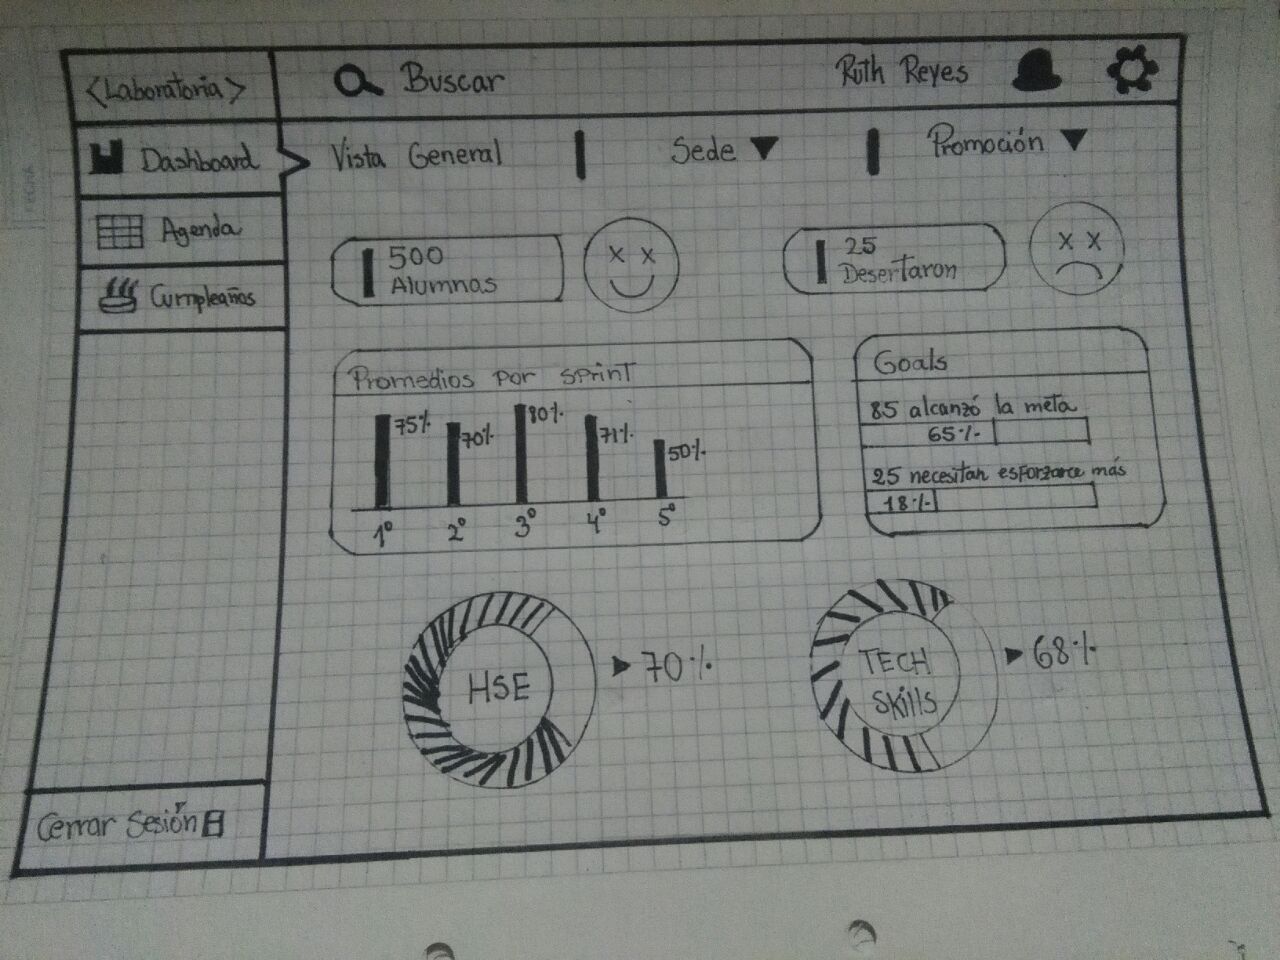 <Laboratoria>
Buscar
Ruth Reyes
Dashboard
Agenda
Cumpleaños
Cerrar Sesión
Vista General
Sede
Promoción
500
Alumnas
25
Desertaron
Promedios por sprint
75%
70%
80%
71%
50%
1°
2°
3°
4°
5°
Goals
85 alcanzó la meta
65%
25 necesitan esforzarce más
18%
HSE
70%
TECH
Skills
68%